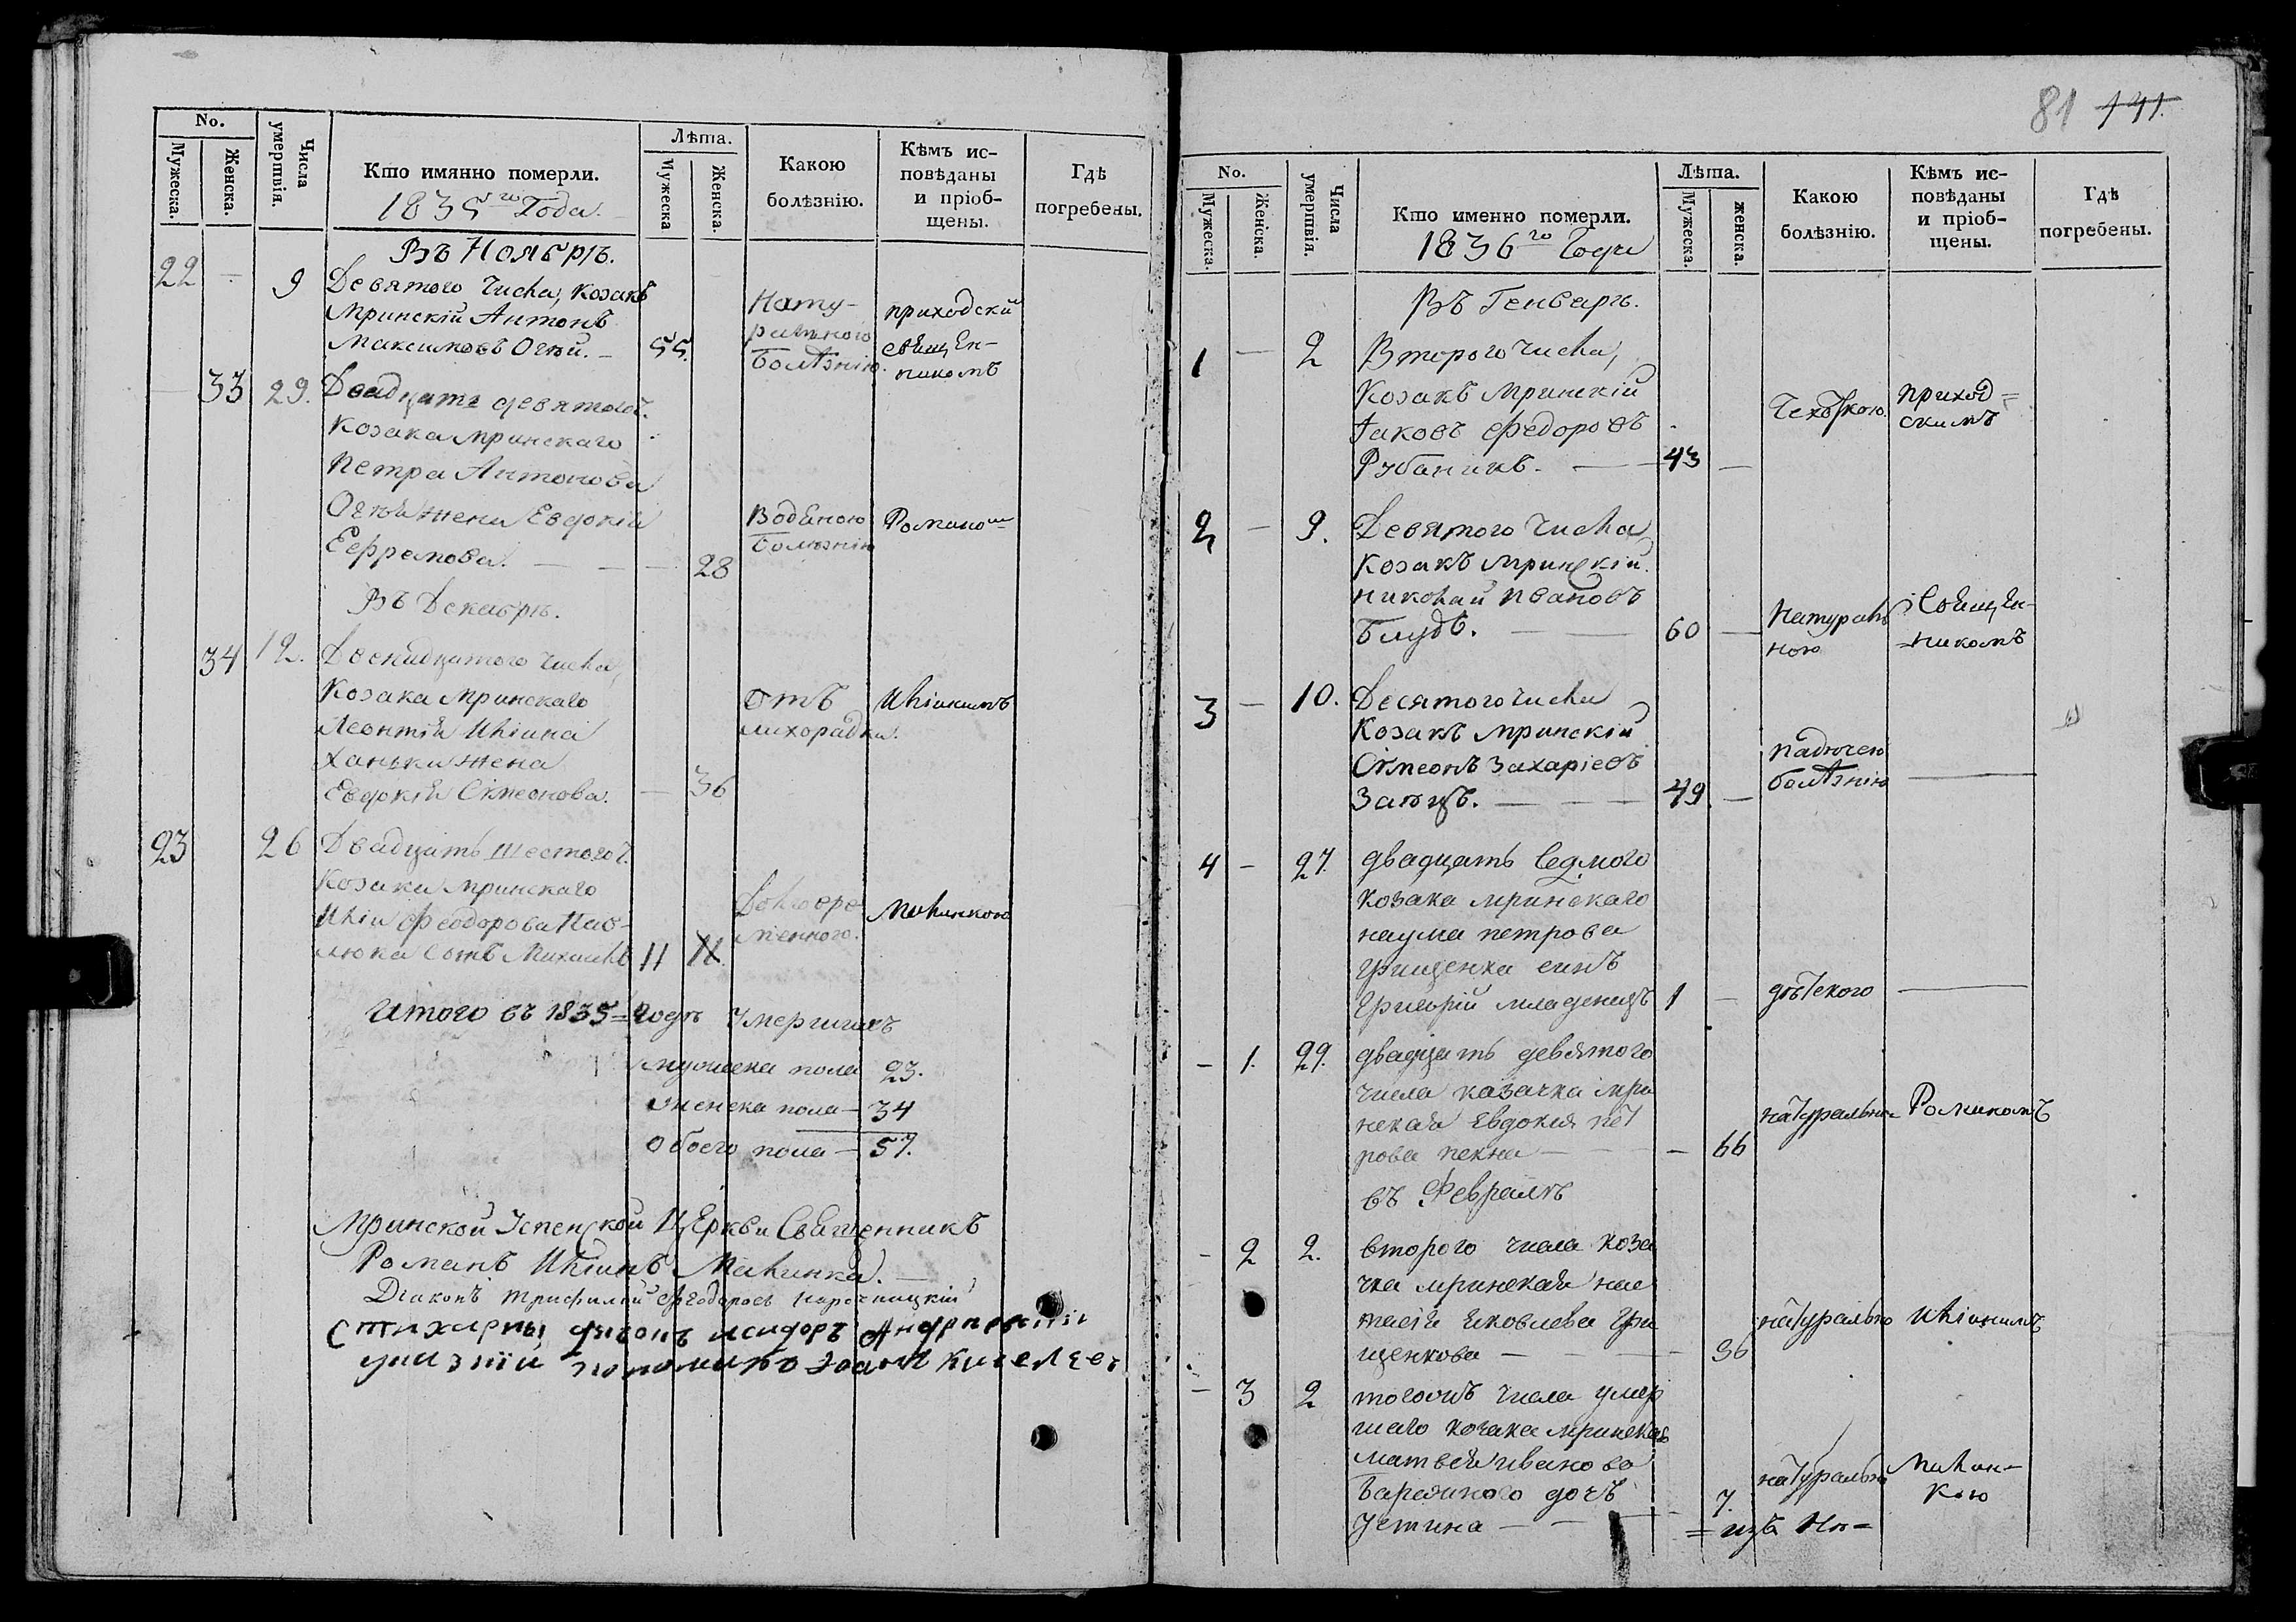 No.
Мужеска.
Женска.
Числа умертвія.
Кто имянно померли.
1835го Года.
Лѣта.
Мужеска
Женска.
Какою
болѣзнію.
Кѣмъ ис-
повѣданы
и пріоб-
щены.
Гдѣ
погребены.
Въ Ноябрѣ.
22 - 9 Девятого числа, козакъ
Мринскій Антонъ
Максимовъ 55.
Нату-
ральною
болѣзнію.
приходскій
свящ ен-
никомъ
33 29. Двадцать девятого ч.
козака мринскаго
Петра Антонова
жена Евдокія
28
Водяною
болѣзнію
Романом
Въ Декабрѣ.
34 12. числа,
Козака Мринскаго
Леонтія Иліина
Ханьки жена
Евдокія Сімеонова. - 36
отъ
лихорадки.
Иліинимъ
23 26 Двадцать шестого ч.
Козака Мринскаго
Иліи Феодорова Пав-
люка сынъ Михаилъ 11 11.
Махинкою
Итого въ 1835= годѣ умершихъ
мужеска пола 23.
женска пола - 34
обоего пола - 57.
Мринской Успенской Церкви Священникъ
Романъ Иліинъ Махинка.
Діаконъ Трифилій Феодоровъ
81 141.
No.
Мужеска.
Женіска.
Числа умертвія.
Кто именно померли.
1836го Года
Лѣта.
Мужеска.
женска.
Какою
болѣзнію.
Кѣмъ ис-
повѣданы
и пріоб-
щены.
Гдѣ
погребены.
Въ Генварѣ.
1 - 2 Второго числа,
Козакъ Мринскій
Іаковъ Федоровъ
Рубаникъ. - 43 -
приход=
скимъ
2 - 9. Девятого числа
Козакъ Мринскій
Николай Ивановъ
Блудъ. - 60 -
Натураль
ною
Свящ ен-
-никомъ
3 - 10. Десятого числа
Козакъ Мринскій
Сімеонъ Захаріевъ
Заяцъ. - 49. -
падючею
болѣзнію -
4 - 27. двадцать седмого
козака мринскаго
наума петрова
Грищенка синъ
Григорій младенецъ 1 -
дѣтского -
- 1. 29. двадцать девятого
числа казачка мри
нская Евдокия пет
рова - - 66
натуральною Романомъ
въ Февралѣ
- 2 2. второго числа коза
чка мринская нас
тасія Яковлева Гри
щенкова - 36
натурально Иліинимъ
- 3 2 тогожъ числа умер
шаго козака мринскаго
матвея иванова
дочъ
Устина - 7.
натурально
Махин-
кою